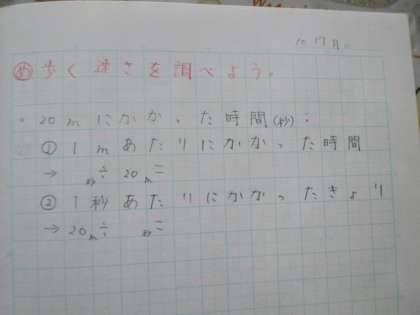 10/17月.
め 歩く速さを調べよう。
・20mにかかった時間(秒):
① 1mあたりにかかった時間
→ 秒÷20m=
② 1秒あたりにかかったきょり
→20m÷ 秒=